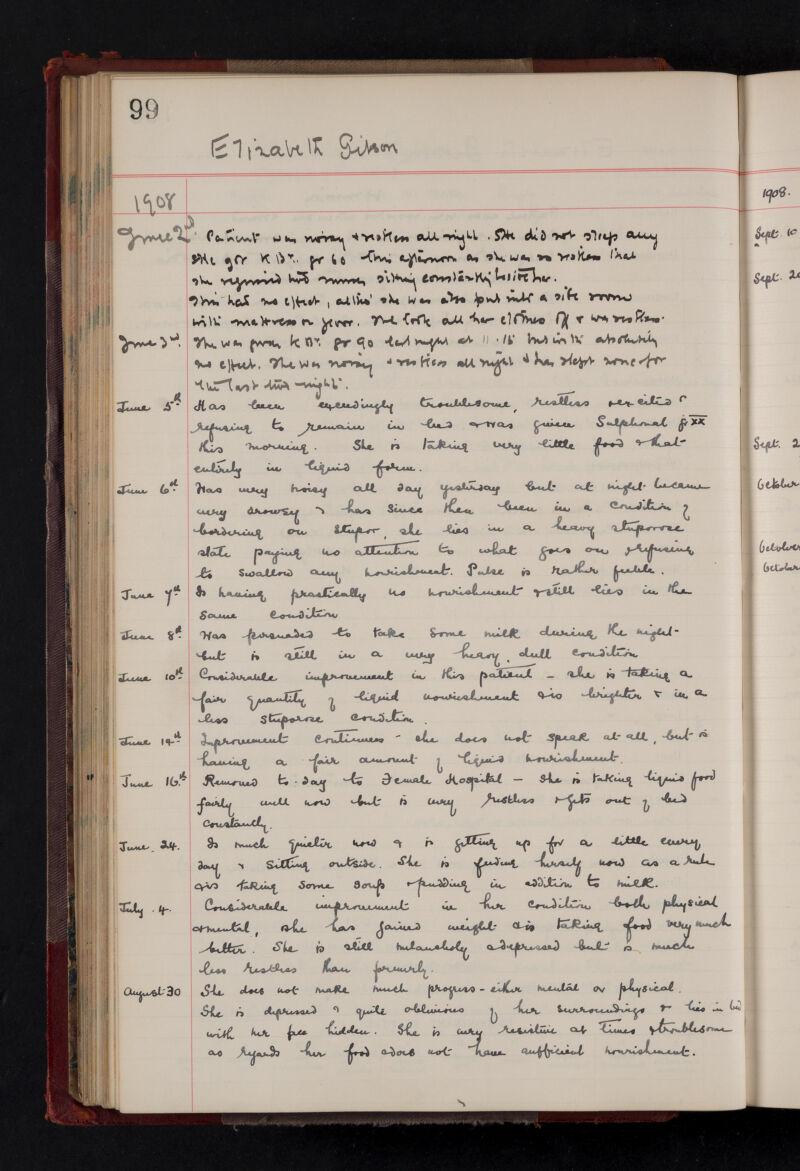 99
Elizabeth Gibson
1908
1908.
June 2nd. Patient was noisy & restless all night. She did not sleep any
She got K Br. gr 60 this afternoon as she was so restless that
she required two nurses sitting constantly beside her.
This had no effect, altho' she was also put into a side room
with mattress on floor. She took all her clothes off & was restless.
June 3rd. She was given K Br. gr 90 last night at 11.15 but with absolutely
no effect. She was noisy & restless all night & has slept none for
the last two nights.
June 5th Has been exceedingly troublesome, restless & excited &
refusing to remain in bed & was given Sulphonal gr XX
this morning. She is taking very little food & that
entirely in liquid form.
June 6th Was very noisy all day yesterday but at night became
very drowsy & has since then been in a condition of
bordering on stupor, she lies in a heavy stuporose
state paying no attention to what goes on & refusing
to swallow any nourishment. Pulse is rather feeble.
June 7th Is having practically no nourishment & still lies in the
same condition
June 8th Was persuaded to take some milk during the night
but is still in a very heavy, dull condition
June 10th Considerable improvement in this patient - she is taking a
fair quantity of liquid nourishment & is brighter & in a
less stuporose condition.
June 14th Improvement continues - she does not speak at all, but is
having a fair amount of liquid nourishment.
June 16th Removed to-day to Female Hospital - She is taking liquid food
fairly well now but is very restless & gets out of bed
constantly.
June. 24. Is much quieter now & is getting up for a little every
day & sitting outside. She is feeding herself now as a rule
& is taking some soup & pudding in addition to milk.
July. 4. Considerable improvement in her condition both physical
& mental, she has gained weight & is taking food very much
better. She is still melancholy & depressed but is much
less restless than formerly.
August 30 She does not make much progress - either mental or physical.
She is depressed & quite oblivious of her surroundings & lies in bed
with her face hidden. She is very resistive at times & troublesome
as regards her food & does not have sufficient nourishment.
Sept. 10
Sept. 2
Sept. 2
October
October
October